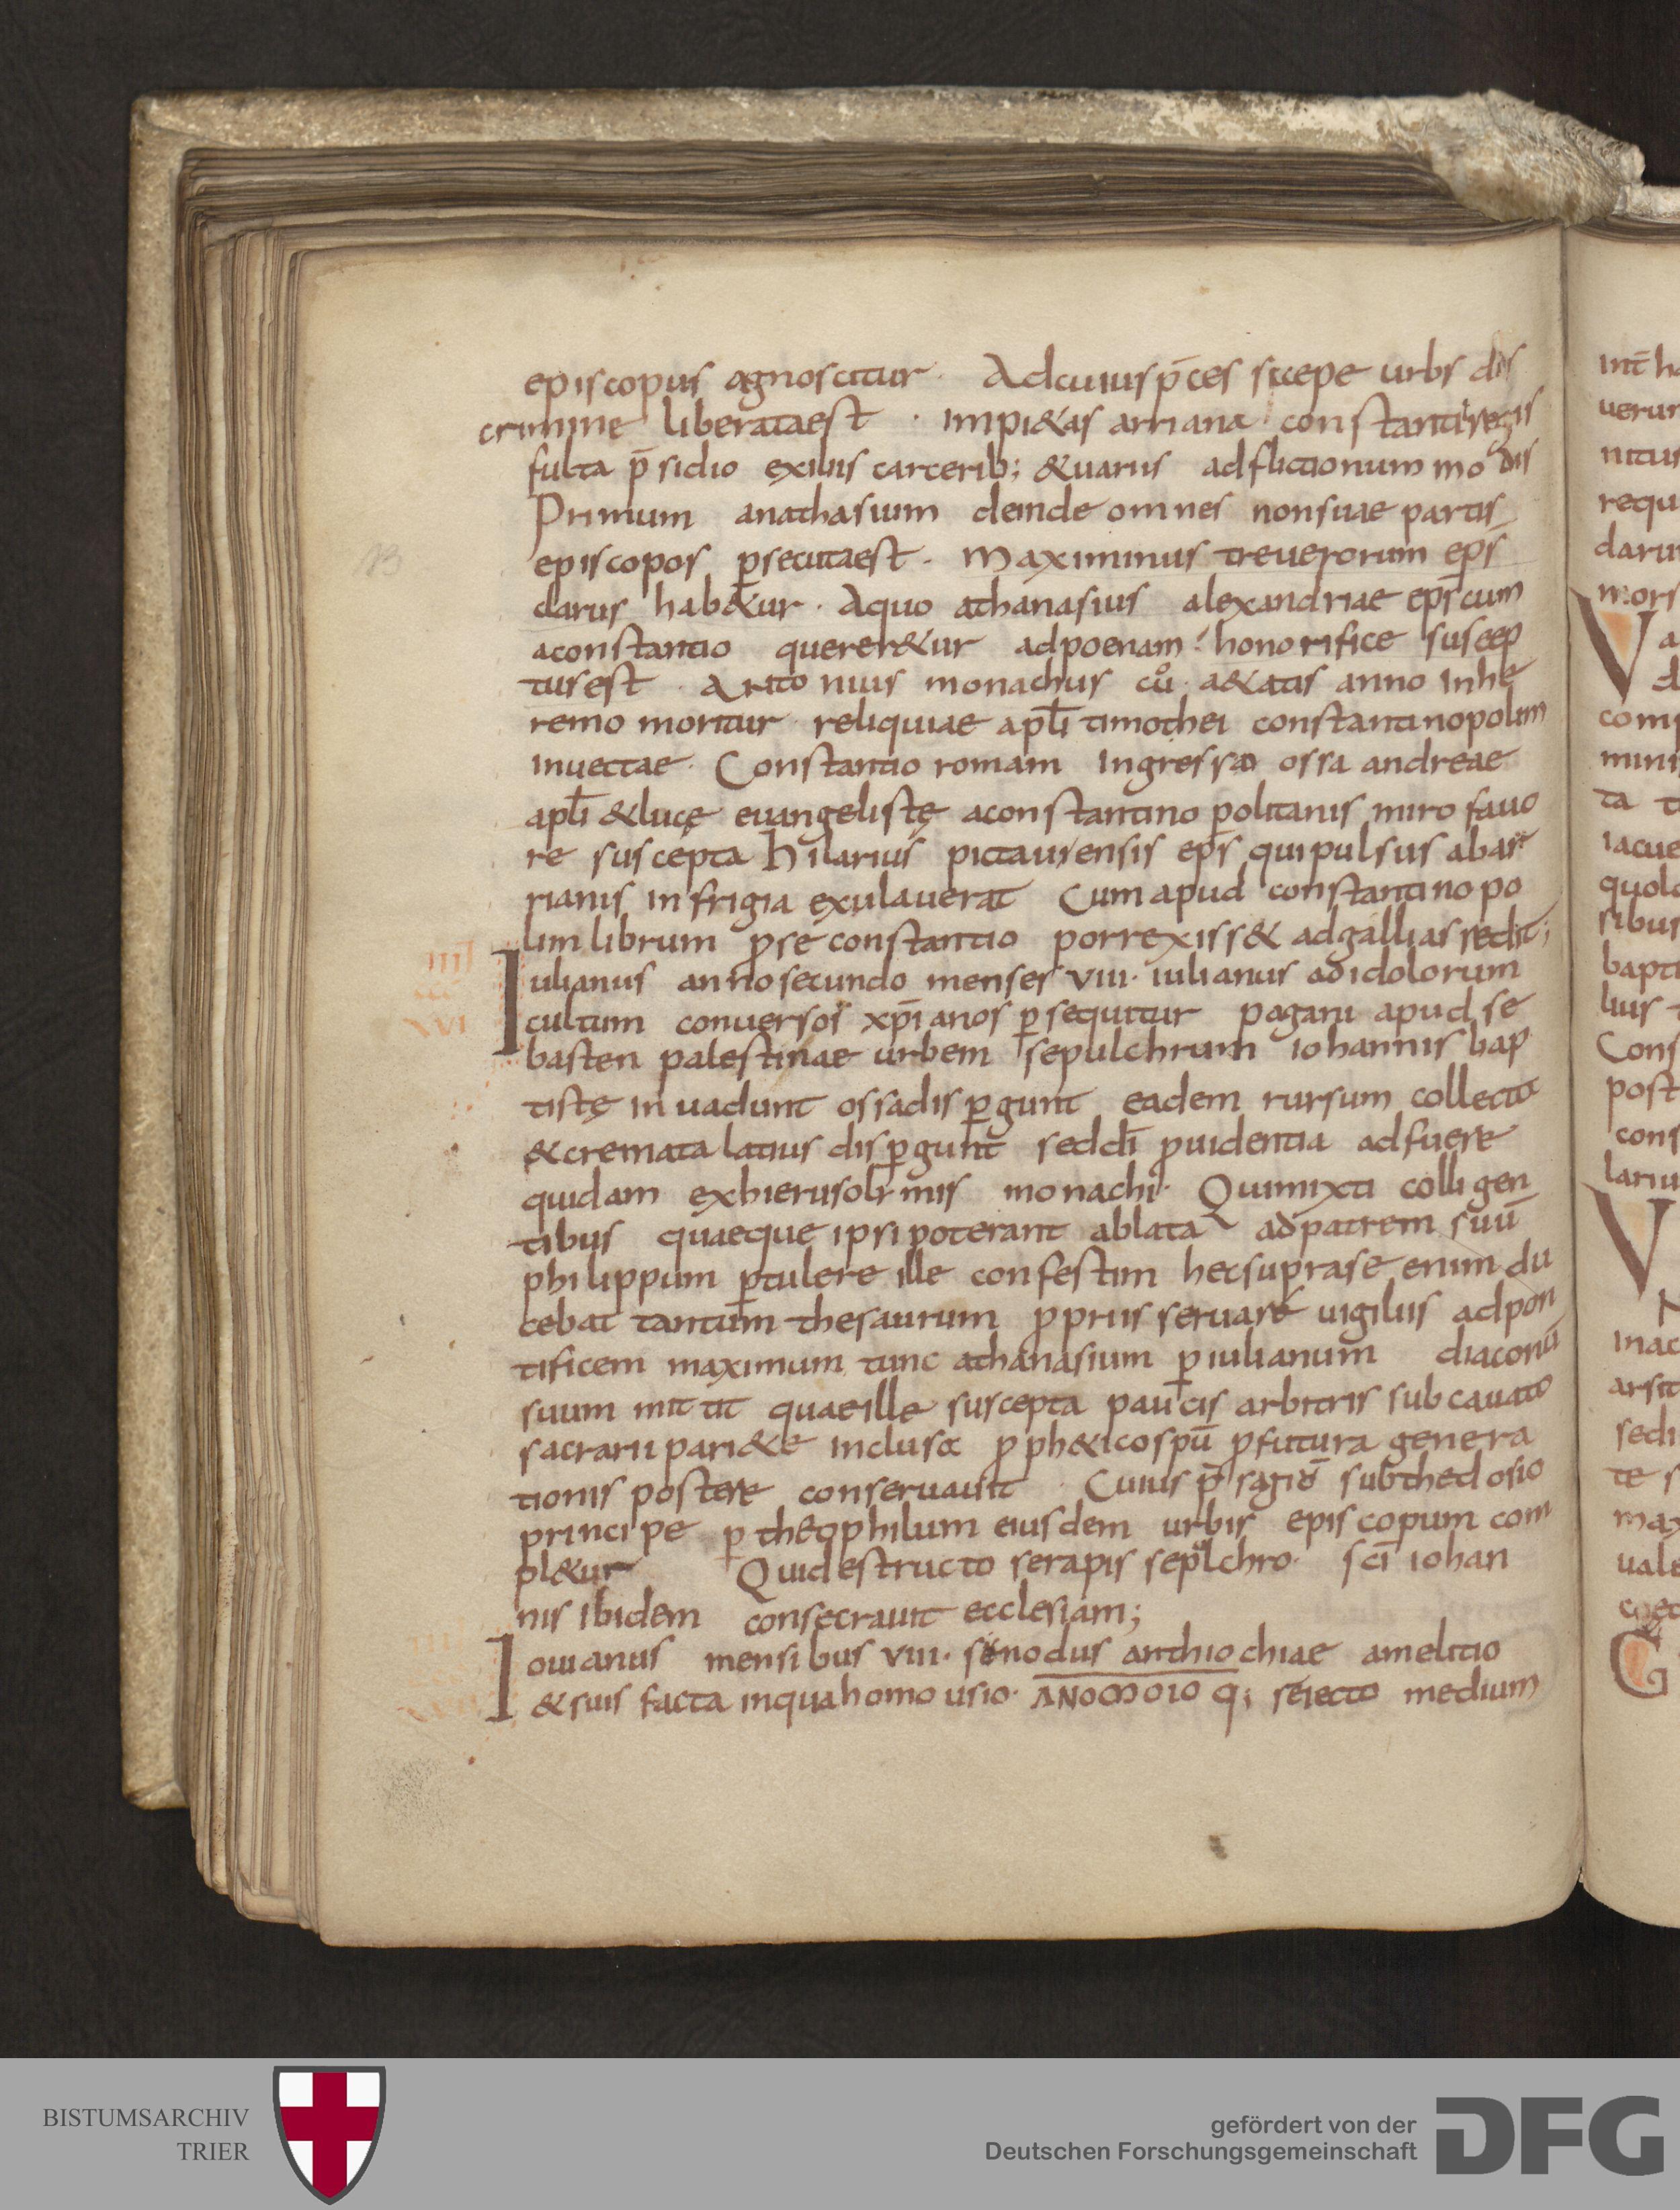 episcopus agnoscitur. Adcuius p̄ces saepe urbs dis
crimine liberataest. impi&as arriana constanti regis
fulta p̄sidio exiliis carcerib; &uariis adflictionum modis
Primum anathasium deinde omnes nonsuae partis
episcopos ꝑsecutaest. Maximinus treuerorum ep̄s
clarus hab&ur. Aquo athanasius alexandriae ep̄s cum
aconstantio querer&ur adpoenam honorifice suscep
tus est. Antonius monachus a&atis anno Inhe
remo moritur reliquiae apl̄i timothei constantinopolim
inuectae. Constantio romam Ingresso ossa andreae
apl̄i &lucę euangelistę aconstantinopolitanis miro fauo
re suscepta hilarius pictauiensis ep̄s quipulsus abar
rianis infrigia exulauerat Cumapud constantinopo
lim librum ꝑse constantio porrexiss& adgallias redit;
Iulianus anno secundo menses VIII. iulianus adidolorum
cultum conuersos xp̄ianos ꝑsequitur pagani apud se
basten palestinae urbem sepulchrum iohannis bap
tistę inuadunt ossadisꝑgunt eadem rursum collecta
&cremata latius disꝑgunt seddī ꝓuidentia adfuere
quidam exhierusolimis monachi. Quimixti colligen
tibus quaeque ipsi poterant ablata adpatrem suū
philippum ꝑtulere ille confestim hecsuprase enim du
cebat tantum thesaurum ꝓpriis seruare uigiliis adpon
tificem maximum tunc athanasium ꝑ iulianum diaconū
suum mittit quaeille suscepta paucis arbitris subcauato
sacrarii pari&e inclusa ꝓph&icospū ꝓfutura genera
tionis postere conseruauit. Cuius p̄sagiō subthedosio
principe ꝑ theophilum eiusdem urbis episcopum com
pl&ur Quidestructo serapis sepulchro. sc̄i iohan
nis ibidem consecrauit ecclesiam;
Iouianus mensibus VIII. sinodus anthiochiae amelitio
&suis facta inquahomousio. ANOMOIO q; reiecto medium
BISTUMSARCHIV
TRIER
gefördert von der
Deutschen Forschungsgemeinschaft
DFG